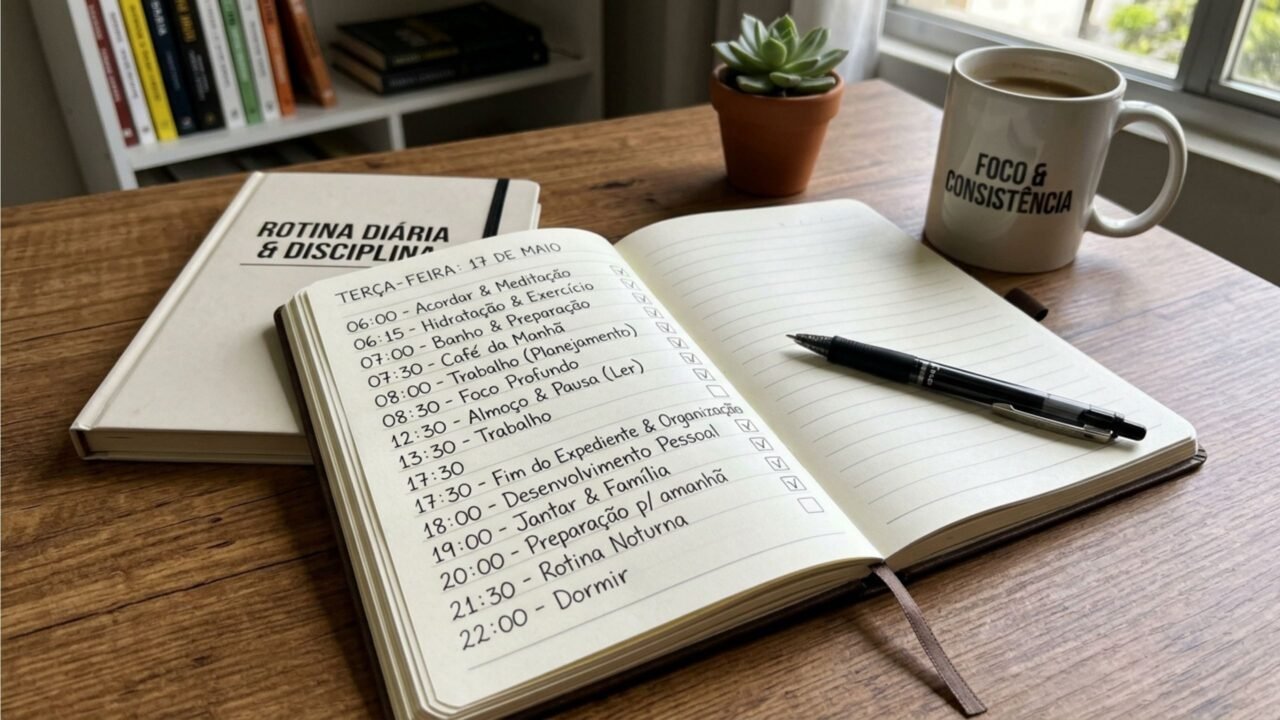 ROTINA DIÁRIA
& DISCIPLINA
TERÇA-FEIRA: 17 DE MAIO
06:00 - Acordar & Meditação
06:15 - Hidratação & Exercício
07:00 - Banho & Preparação
07:30 - Café da Manhã
08:00 - Trabalho (Planejamento)
08:30 - Foco Profundo
12:30 - Almoço & Pausa (Ler)
13:30 - Trabalho
17:30
17:30 - Fim do Expediente & Organização
18:00 - Desenvolvimento Pessoal
19:00 - Jantar & Família
20:00 - Preparação p/ amanhã
21:30 - Rotina Noturna
22:00 - Dormir
FOCO &
CONSISTÊNCIA